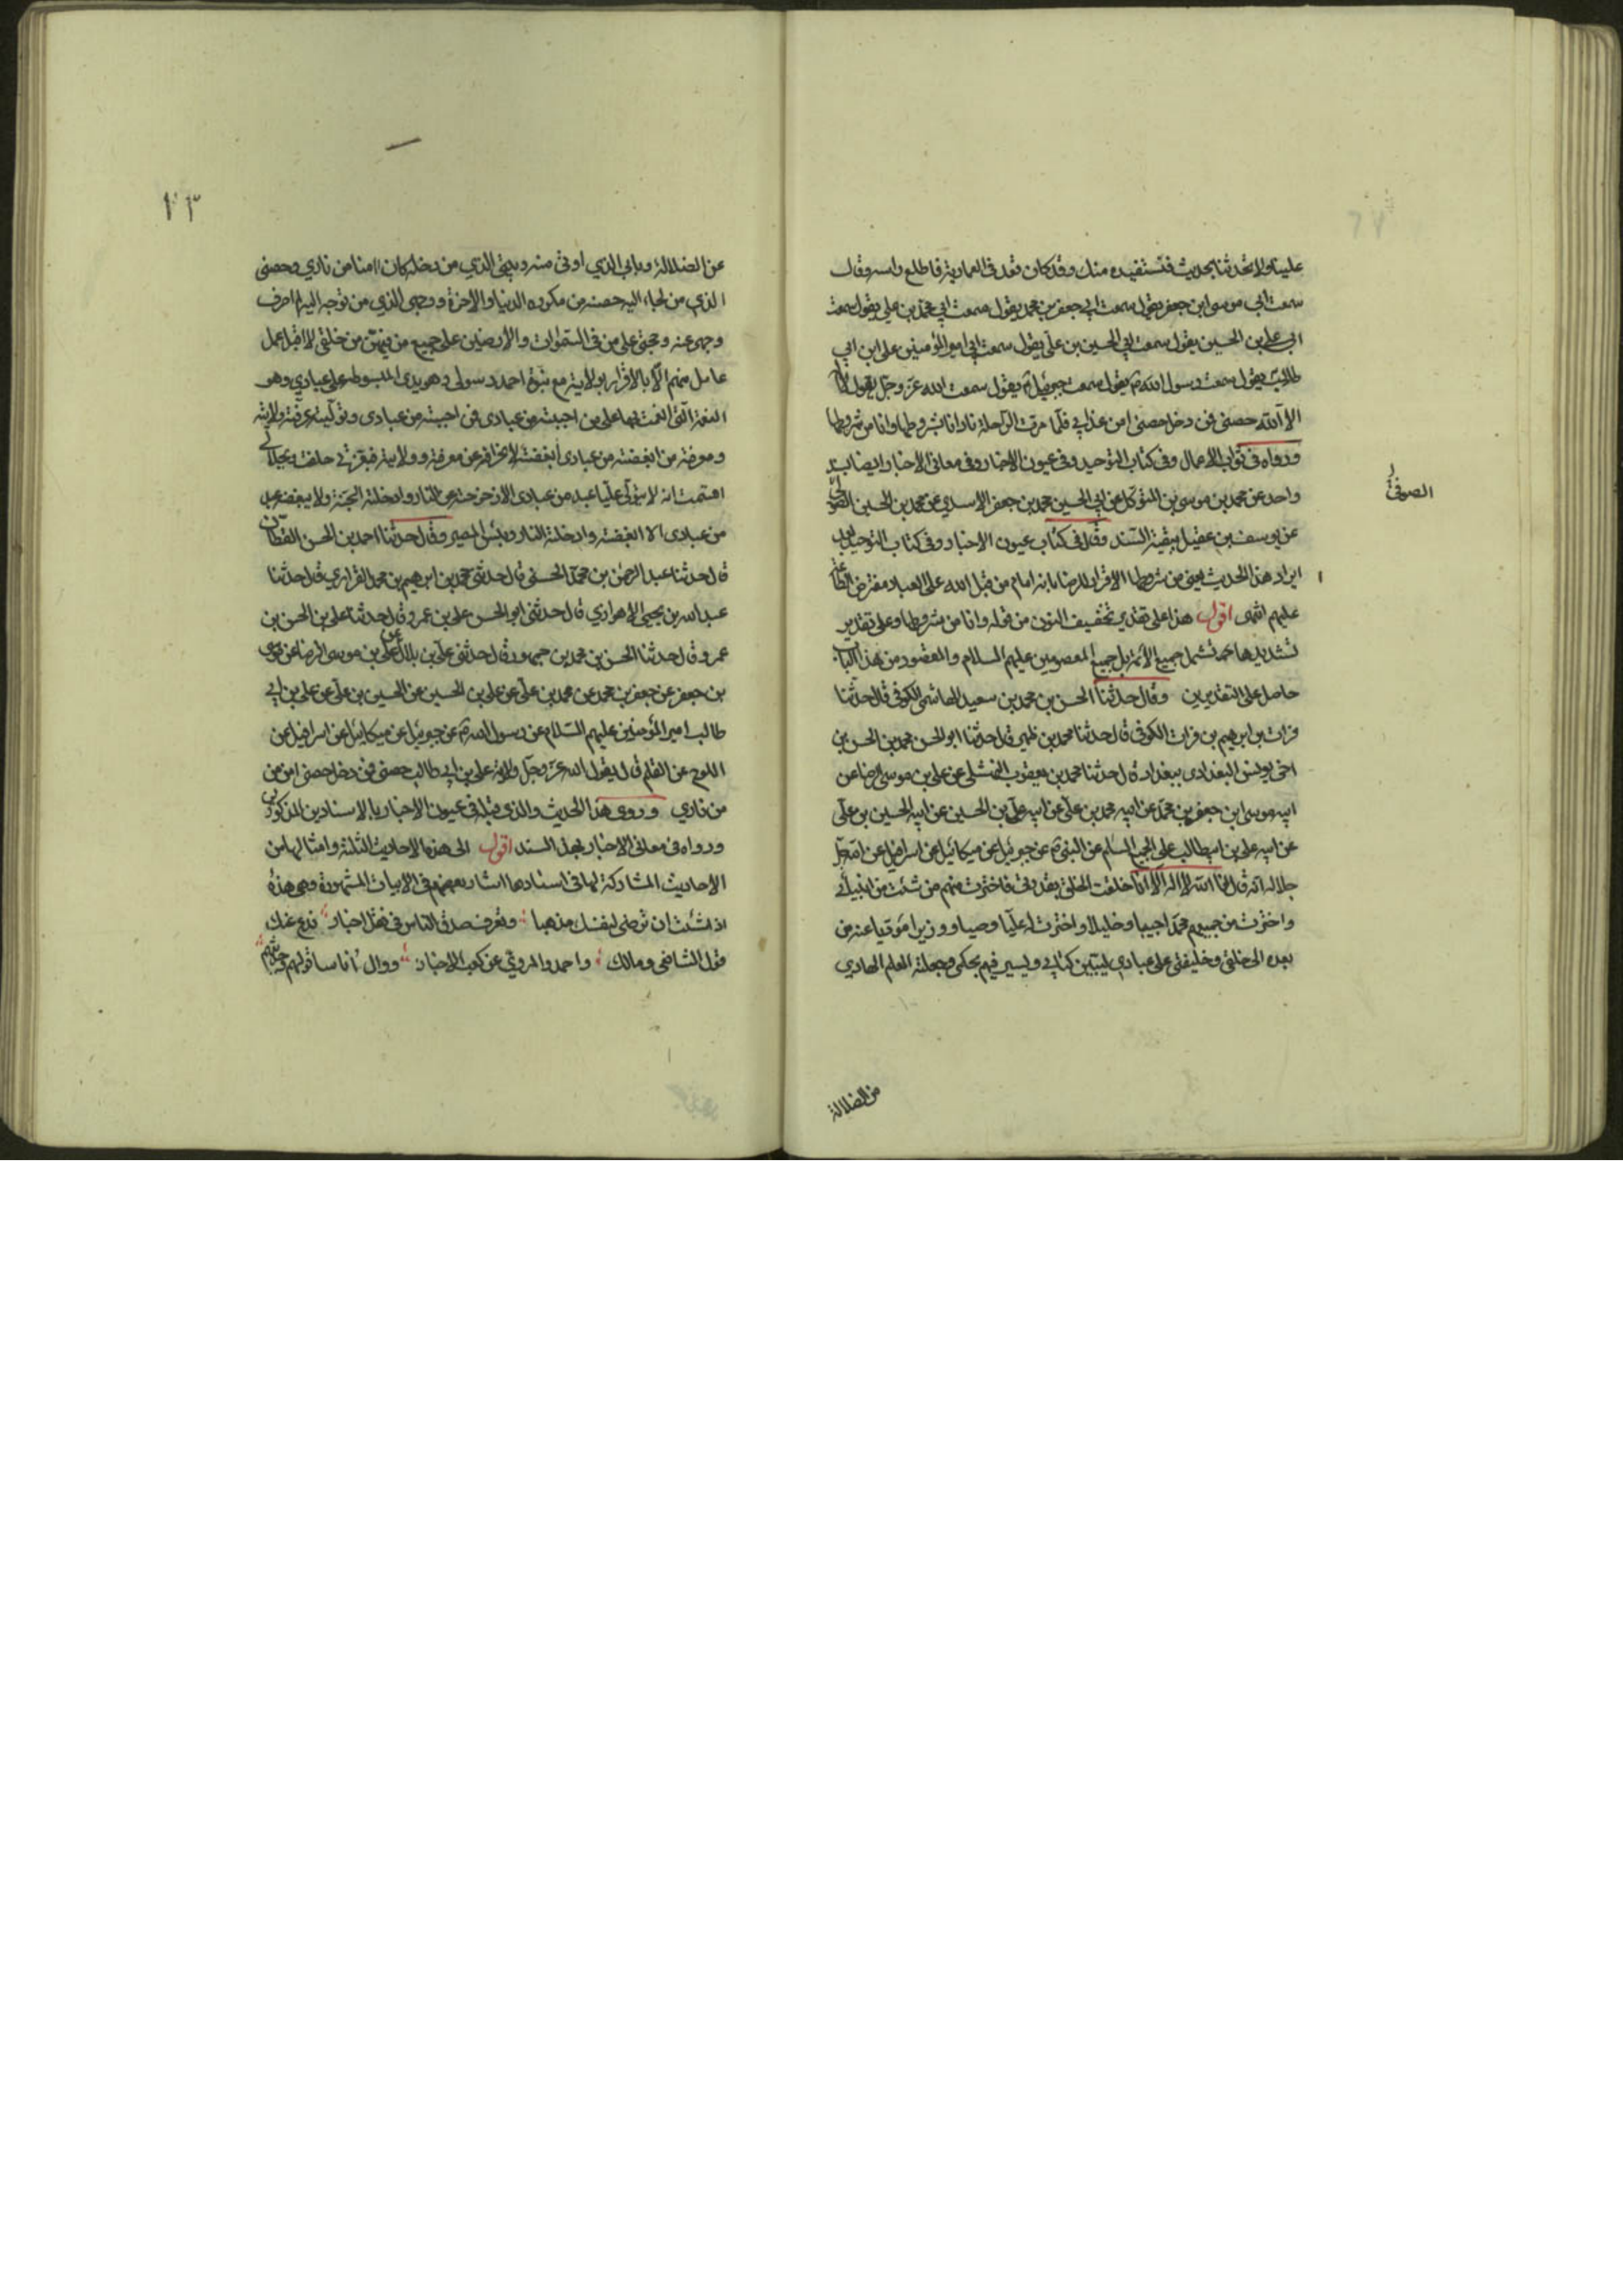 علينا ولا تحدثنا بحديث فنستفيده منك وقد كان قعد في العمارية فاطلع راسه وقال
سمعت ابي موسى ابن جعفر يقول سمعت ابي جعفر بن محمد يقول سمعت ابي محمد بن علي يقول سمعت
ابي علي بن الحسين يقول سمعت ابي الحسين بن علي يقول سمعت ابي امير المؤمنين علي ابن ابي
طالب يقول سمعت رسول الله ص يقول سمعت جبرئيل يقول سمعت الله عز وجل يقول لا اله
الا الله حصني فمن دخل حصني امن عذابي فلما مرت الراحلة نادانا بشروطها وانا من شروطها
ورواه في ثواب الاعمال وفي كتاب التوحيد وفي عيون الاخبار وفي معاني الاخبار ايضا بسند
واحد عن محمد بن موسى بن المتوكل عن ابي الحسين محمد بن جعفر الاسدي عن محمد بن الحسين الصولي
الصوفي ل
عن يوسف بن عقيل ببقية السند وقال في كتاب عيون الاخبار وفي كتاب التوحيد بعد
ايراد هذا الحديث يعني من شروطها الاقرار للرضا بانه امام من قبل الله على العباد مفترض الطاعة
عليهم انتهى اقول هذا على تقدير تخفيف النون من قوله وانا من شروطها وعلى تقدير
تشديدها تشمل جميع الائمة بل جميع المعصومين عليهم السلام والمقصود من هذا الباب
حاصل على التقديرين وقال حدثنا الحسن بن محمد بن سعيد الهاشمي الكوفي قال حدثنا
فرات بن ابرهيم بن فرات الكوفي قال حدثنا محمد بن ظهير قال حدثنا ابو الحسن محمد بن الحسن بن
اخي يونس البغدادي ببغداد قال حدثنا محمد بن يعقوب النهشلي عن علي بن موسى الرضا عن
ابيه موسى ابن جعفر بن محمد عن ابيه محمد بن علي عن ابيه علي بن الحسين عن ابيه الحسين بن علي
عن ابيه علي بن ابيطالب عليهم السلام عن النبي ص عن جبرئيل عن ميكائيل عن اسرافيل عن الله جل
جلاله انه قال انا الله لا اله الا انا خلقت الخلق بقدرتي فاخترت منهم من شئت من انبيائي
واخترت من جميعهم محمدا حبيبا وخليلا واخترت له عليا وصيا ووزيرا مؤديا عنه من
بعده الى خلقي وخليفتي على عبادي ليبين كتابي ويسير فيهم بحكمي وجعلته العلم الهادي
من الضلالة
١٣
عن الضلالة وبابي الذي اوتى منه وبيتي الذي من دخله كان امنا من ناري وحصني
الذي من لجاء اليه حصنه من مكروه الدنيا والاخرة ووجهي الذي من توجه اليه لم اصرف
وجهي عنه وحجتي على من في السموات والارضين على جميع من فيهن من خلقي لا اقبل عمل
عامل منهم الا بالاقرار بولايته مع نبوة احمد رسولي وهو يدي المبسوطة على عبادي وهو
النعمة التي انعمت بها على من احببته من عبادي فمن احببته من عبادي وتوليته عرفته ولايته
ومعرفته من ابغضته من عبادي ابغضته لانحرافه عن معرفته وولايته فبعزتي حلفت وبجلالي
اقسمت انه لا يتولى عليا عبد من عبادي الا زحزحته عن النار وادخلته الجنة ولا يبغضه عبد
من عبادي الا ابغضته وادخلته النار وبئس المصير وقال حدثنا احمد بن الحسن القطان
قال حدثنا عبد الرحمن بن محمد الحسني قال حدثني محمد بن ابرهيم بن محمد الفزاري قال حدثنا
عبد الله بن يحيى الاهوازي قال حدثني ابو الحسن علي بن عمرو قال حدثنا علي بن الحسن بن
عمرو قال حدثنا الحسن بن محمد بن جمهور قال حدثني علي بن بلال عن علي بن موسى الرضا عن موسى
بن جعفر عن جعفر بن محمد عن محمد بن علي عن علي بن الحسين عن الحسين بن علي عن علي بن ابي
طالب امير المؤمنين عليهم السلام عن رسول الله ص عن جبرئيل عن ميكائيل عن اسرافيل عن
اللوح عن القلم قال يقول الله عز وجل ولاية علي بن ابي طالب حصني فمن دخل حصني امن من
من ناري وروى هذا الحديث والذي قبله في عيون الاخبار بالاسنادين المذكورين
ورواه في معاني الاخبار بهذا السند اقول الى هذه الاحاديث الثلثة وامثالها من
الاحاديث المشاركة لها في اسنادها اشار بعضهم في الابيات المشهورة وهي هذه
اذا شئت ان ترضى لنفسك مذهبا وتعرف صدق الناس في نقل اخبار فدع عنك
قول الشافعي ومالك واحمد والمروي عن كعب الاحبار ووال اناسا قولهم وحديثهم